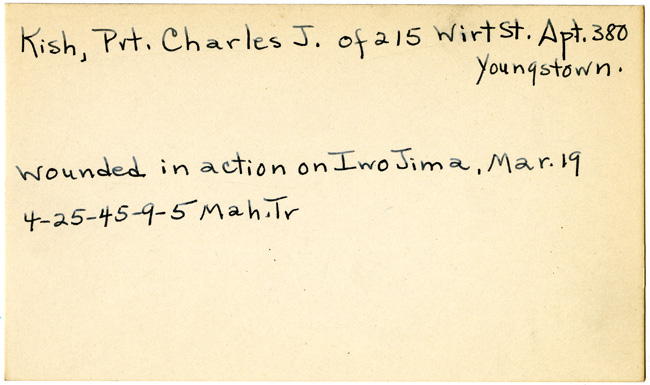 Kish, Pvt. Charles J. of 215 Wirt St. Apt. 380
Youngstown.
Wounded in action on Iwo Jima, Mar. 19
4-25-45-9-5 Mah. Tr